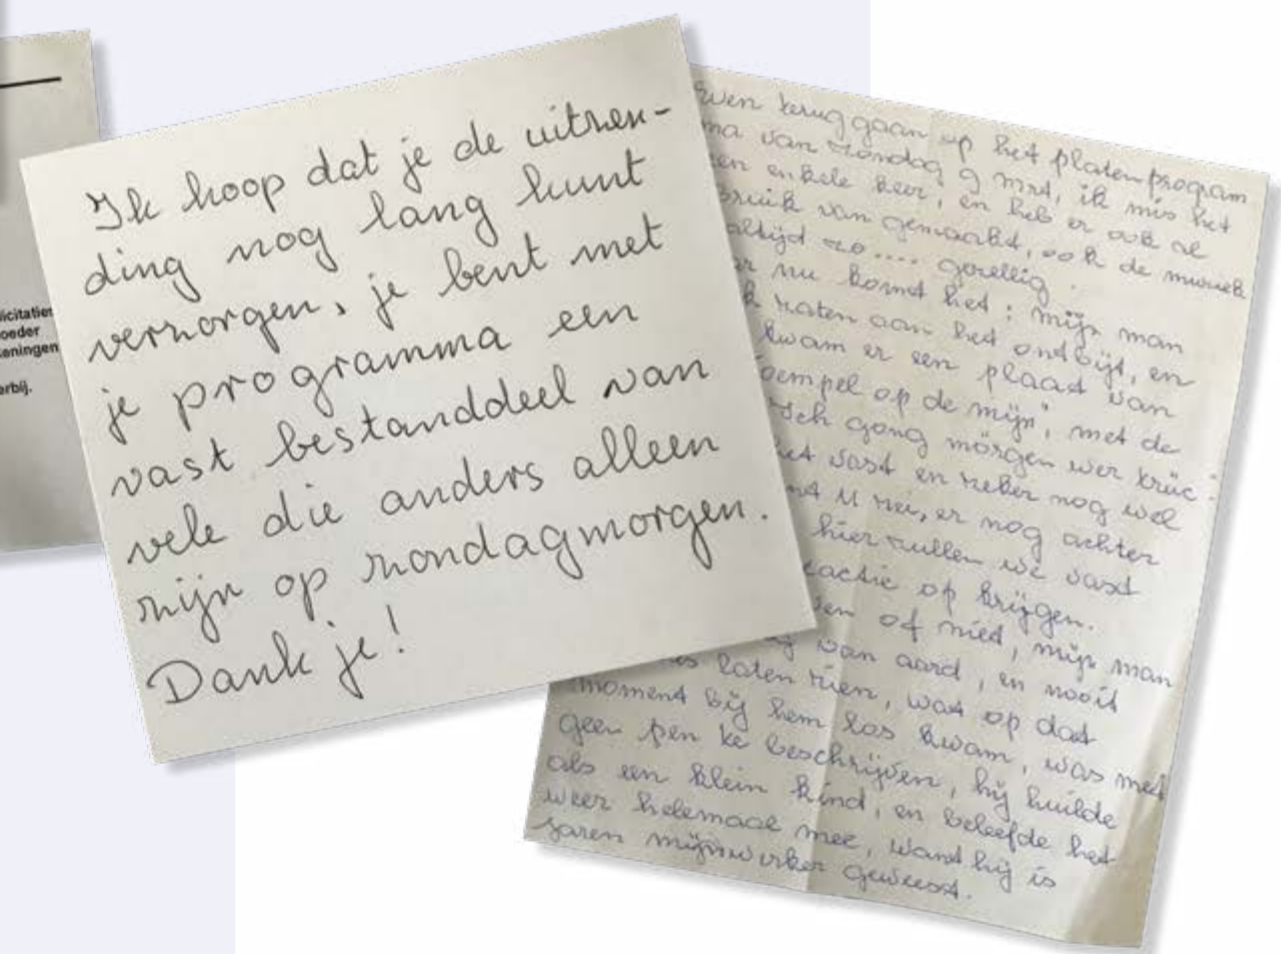 licitaties
oeder
keningen
erbij.
Ik hoop dat je de uitzen-
ding nog lang kunt
verzorgen, je bent met
je programma een
vast bestanddeel van
vele die anders alleen
zijn op zondagmorgen.
Dank je!
even terug gaan op het platenprogram
ma van zondag 9 mrt, ik mis het
en enkele keer, en heb er ook al
bruik van gemaakt, ook de muziek
altijd zo.... gezellig.
ar nu komt het: mijn man
k zaten aan het ontbijt, en
kwam er een plaat van
oempel op de mijn", met de
gong mörgen wer trüc"
het vast en zeker nog wel
nt U zei, er nog achter
hier zullen we vast
eactie op krijgen.
en of niet, mijn man
g van aard, en nooit
es laten zien, wat op dat
moment bij hem los kwam, was met
geen pen te beschrijven, hij huilde
als een klein kind, en beleefde het
weer helemaal mee, want hij is
jaren mijnwerker geweest.